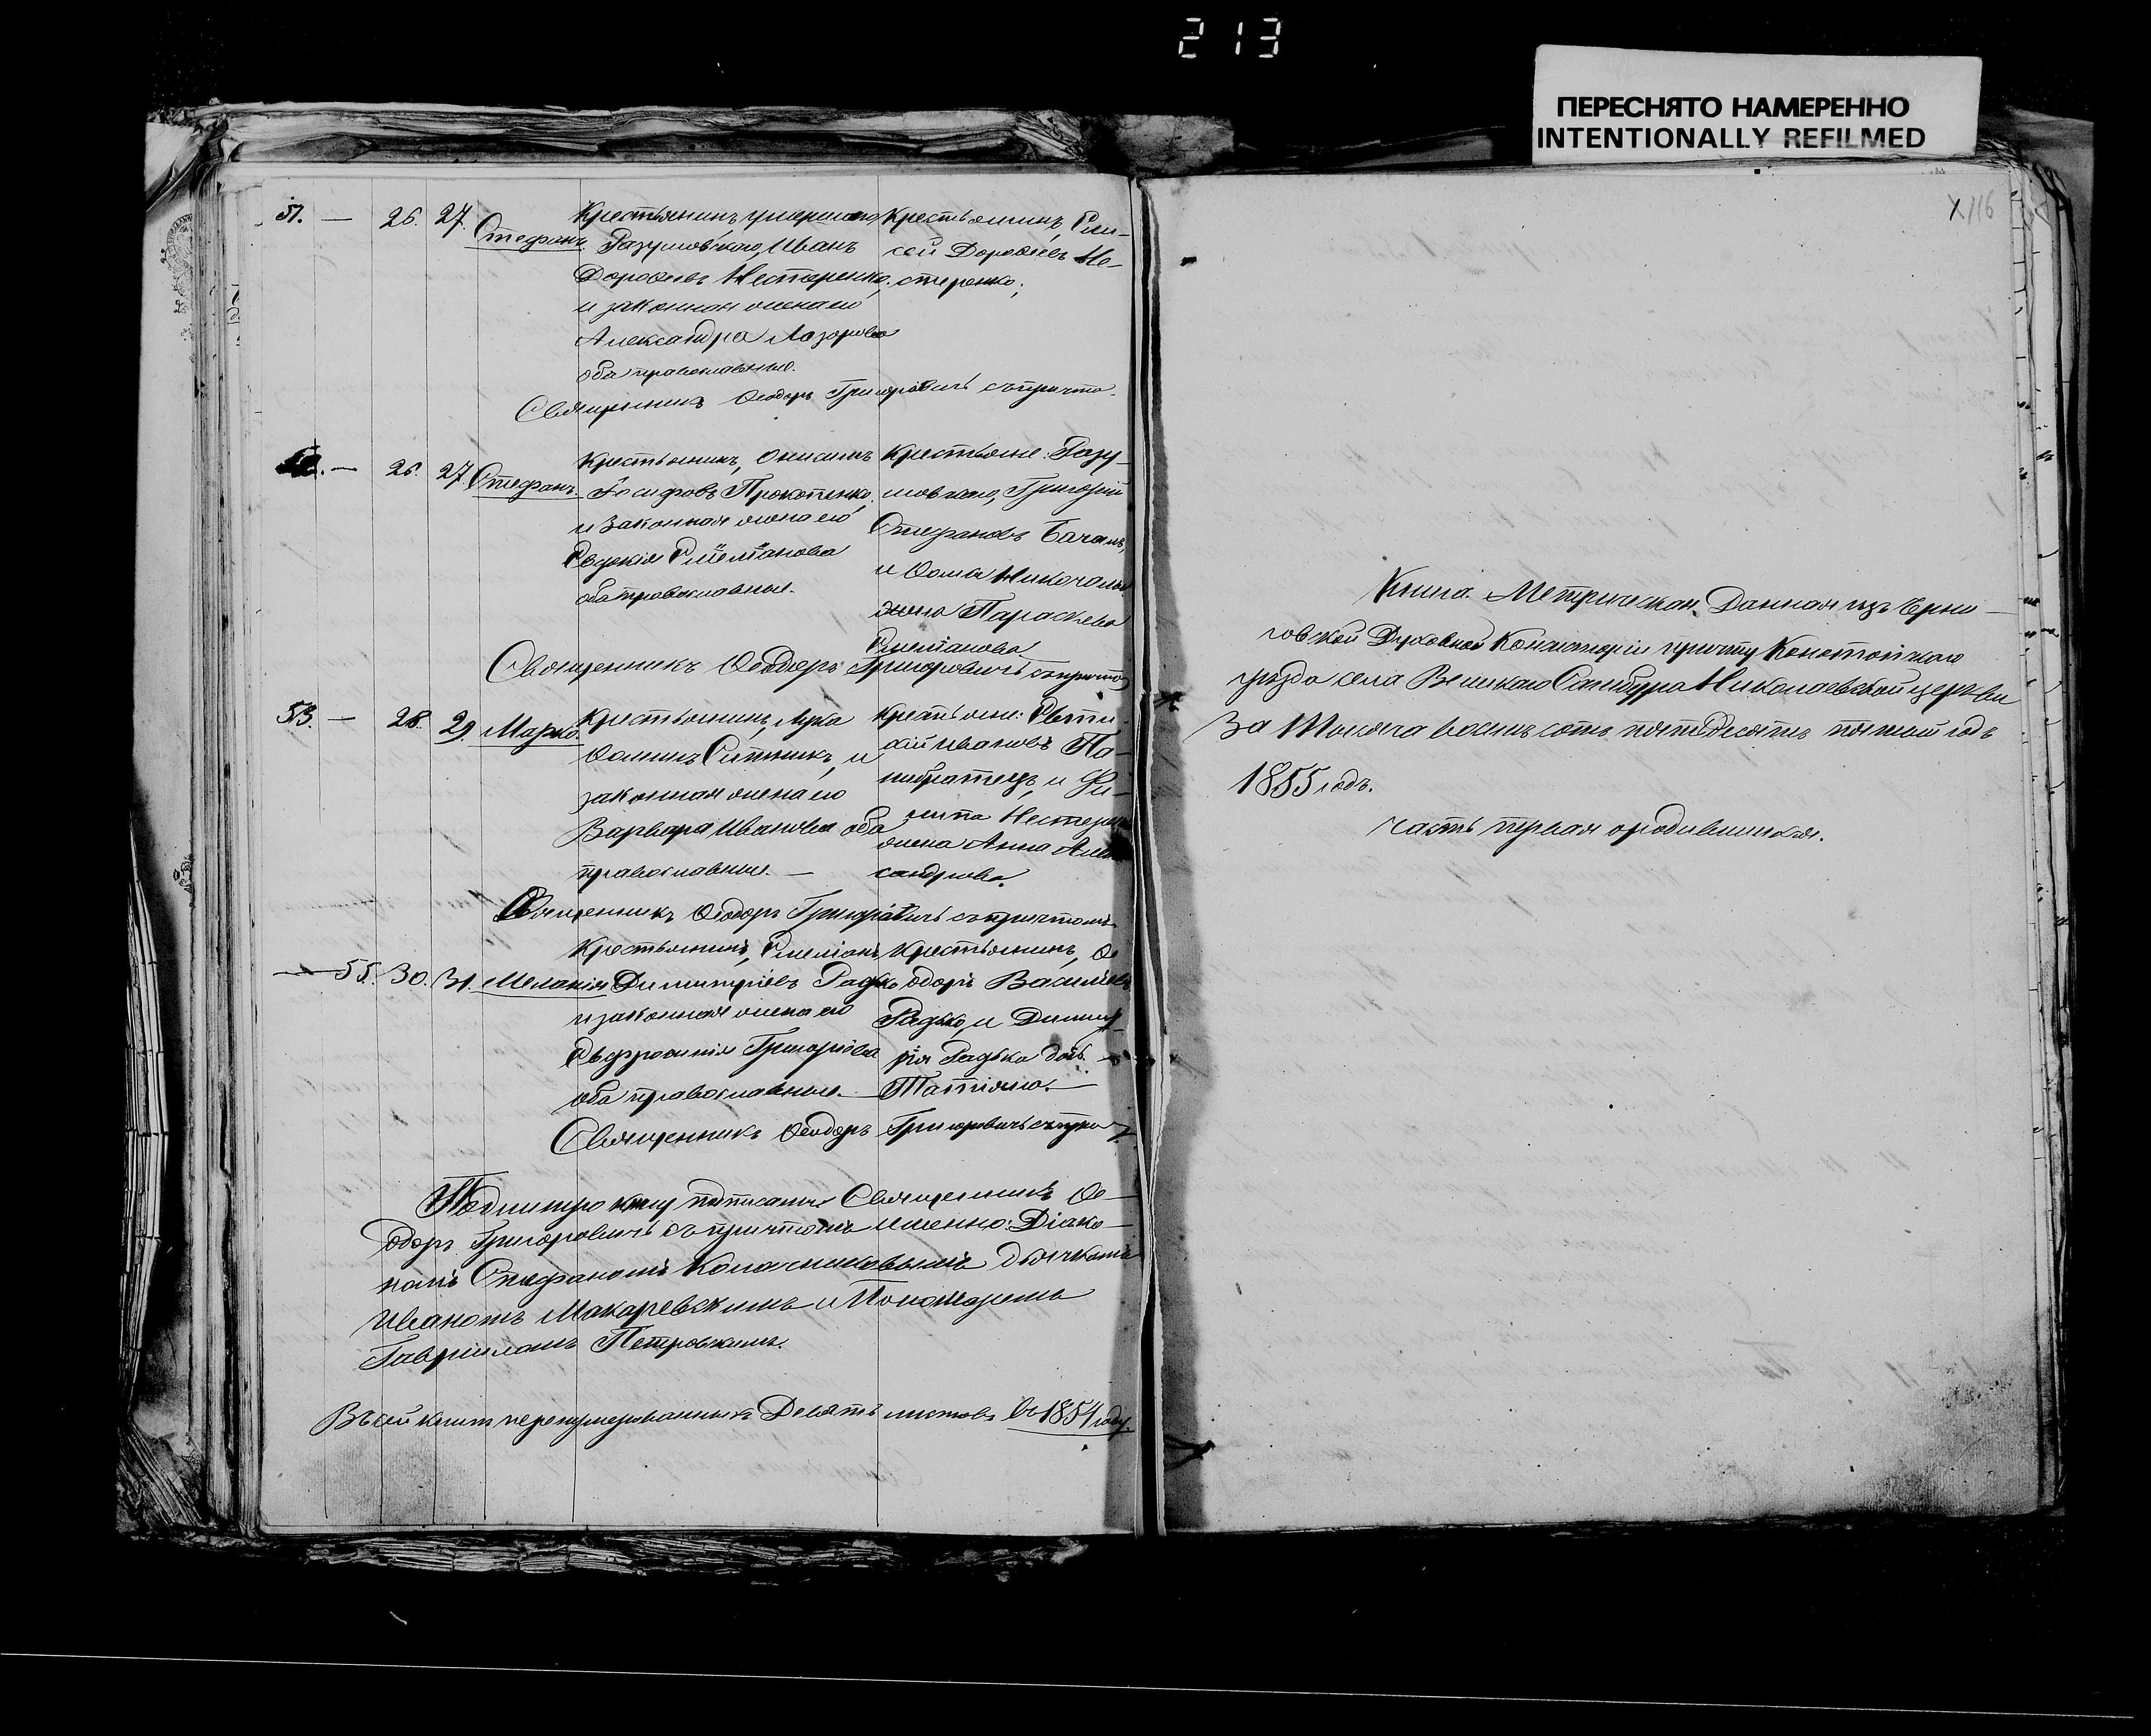 213
ПЕРЕСНЯТО НАМЕРЕННО
INTENTIONALLY REFILMED
51. — 26. 27. Стефанъ
Крестьянинъ, умершаго
Разумовскаго, Иванъ
Дорофеевъ Нестеренко,
и законная жена его
Александра Лазарева
оба православные.
Крестьянинъ, Ели-
сей Дорофеевъ Не-
стеренко;
Священникъ Ѳеодоръ Григоровичъ съ причто.
— 26. 27. Стефанъ.
Крестьянинъ, Онисимъ
Іосифовъ Прокопенко,
и законная жена его
Евдокія Емеліанова
оба православные.
Крестьяне: Разу-
мовскаго, Григорій
Стефановъ
и Ѳома
жена Параскева
Емеліанова.
Священникъ Ѳеодоръ Григоровичъ съ причто
53. — 28. 29. Марко.
Крестьянинъ, Лука
Ѳоминъ Ситникъ, и
законная жена его
Варвара Иванова оба
православные. —
Крестьяне: Евти-
хій Ивановъ Па-
нибратецъ, и Фи-
липа
жена Анна Алек
сандрова.
Священникъ Ѳеодоръ Григоровичъ съ причтомъ
— 55. 30. 31. Меланія
Крестьянинъ, Емеліанъ
Димитріевъ Радько
и законная жена его
Евфросинія Григоріева
оба православные. —
Крестьянинъ, Ѳе
одоръ Василіевъ
Радько, и Димит
рія Радька дочь
Татіяна. —
Священникъ Ѳеодоръ Григоровичъ съ при
Подлинную книгу подписали Священникъ Ѳе-
одоръ Григоровичъ съ причтомъ именно: Діако-
номъ Стефаномъ дьячкомъ
Иваномъ Макаревскимъ и Пономаремъ
Гавріиломъ Петровскимъ.
Въ сей книге перенумерованныхъ Девять листовъ въ 1854 году.
116
Книга Метрическая, Данная изъ Черни-
говской Духовной Консисторіи причту Конотопскаго
уезда села Великаго Самбура Николаевской церкви
За Тысяча восемь сотъ пятьдесятъ пятый годъ
1855 годъ.
часть первая о родившихся.